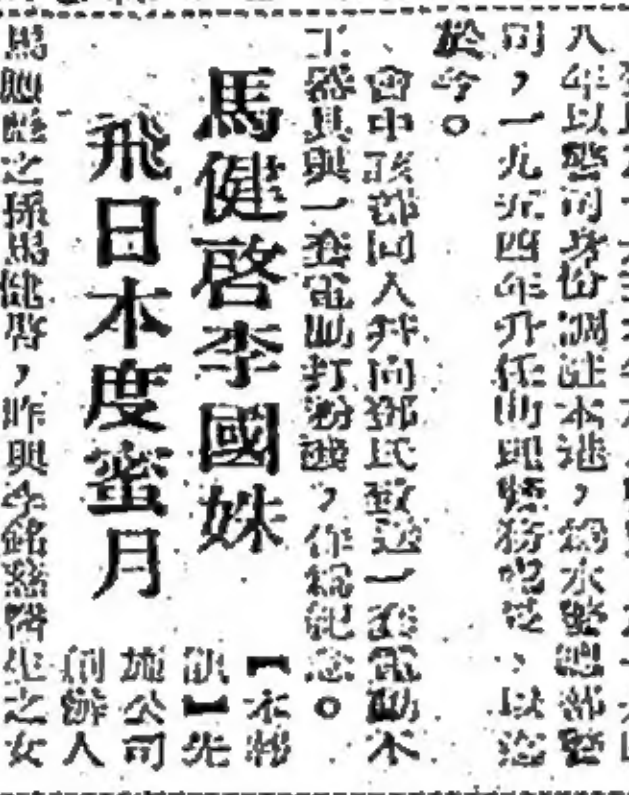 八年以警司身份調駐本港,為水警總部警
司,一九五四年升任助理警務處長,以迄
於今。
、會中該部同人幷向鄧氏致送一套電動木
工器具與一套電動打機,作為紀念。
馬健啓李國姝
飛日本度蜜月
【本報
訊】先
施公司
創辦人
馬應彪之孫馬健啓,昨與李銘慈醫生之女